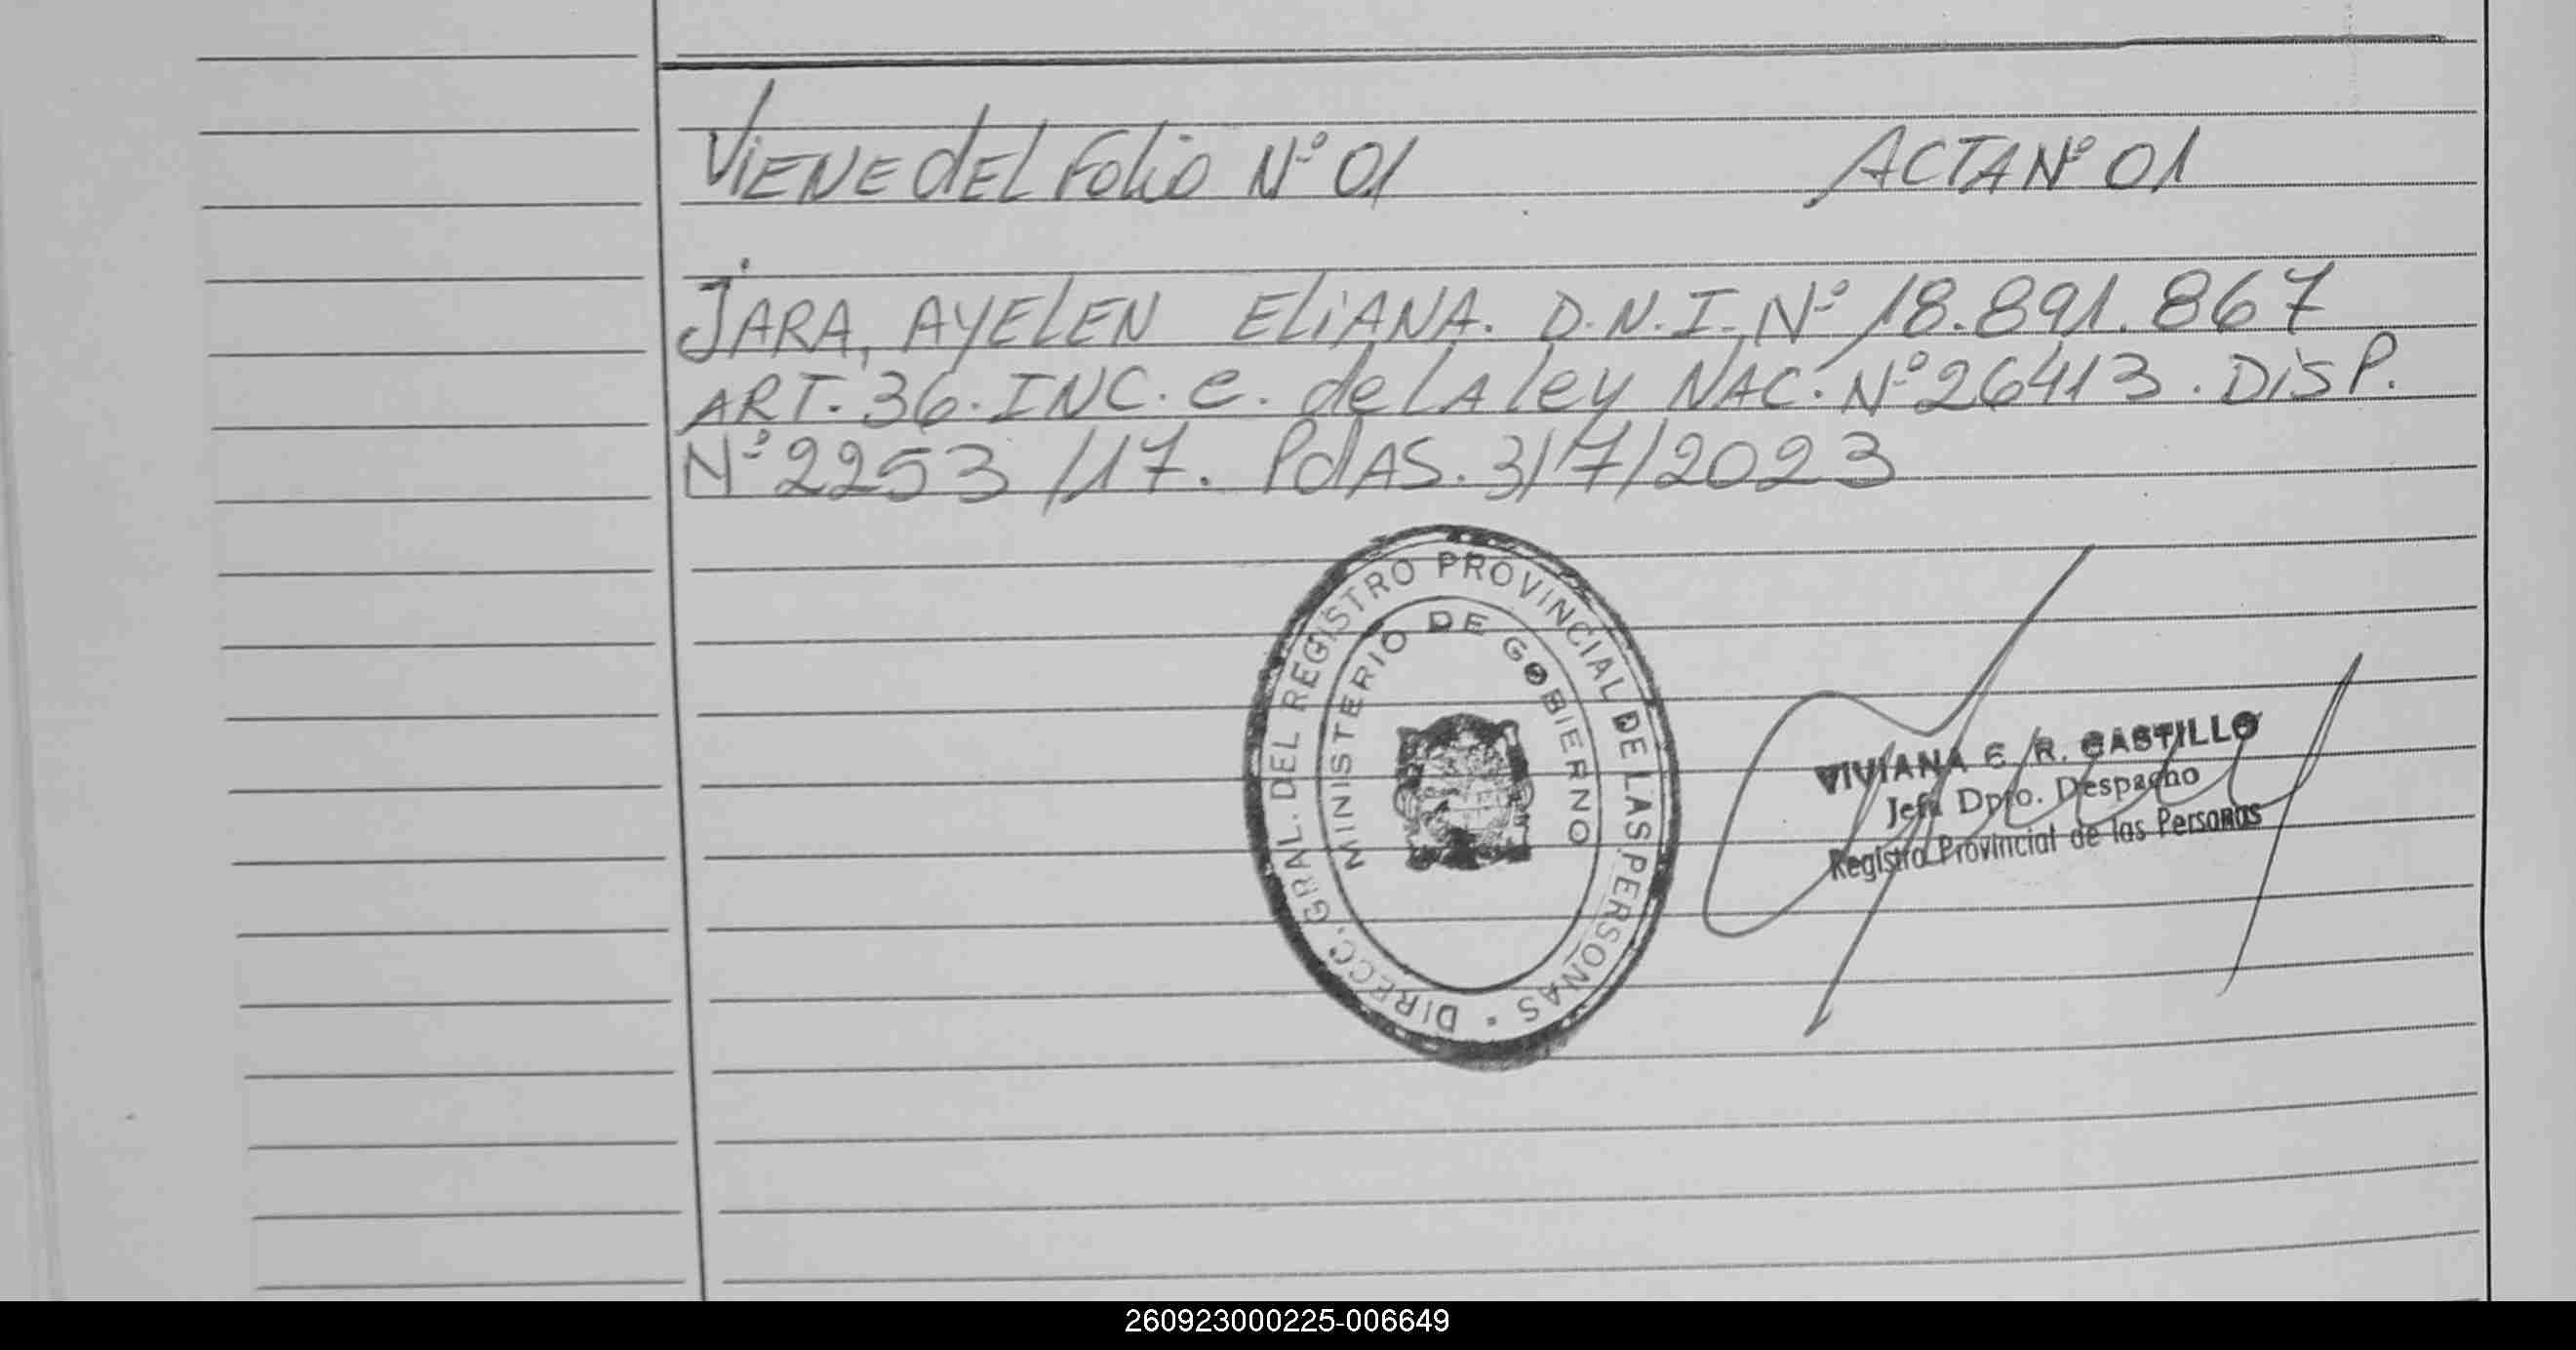 VIENE DEL FOLIO Nº 01 ACTA Nº 01
JARA, AYELEN ELIANA. D.N.I. Nº 18.891.867
ART. 36. INC. e. de LA ley NAC. Nº 26413. DISP.
Nº 2253/17. PdAS. 3/7/2023
DIRECC. GRAL. DEL REGISTRO PROVINCIAL DE LAS PERSONAS
MINISTERIO DE GOBIERNO
VIVIANA E. R. CASTILLO
Jefa Dpto. Despacho
Registro Provincial de las Personas
260923000225-006649